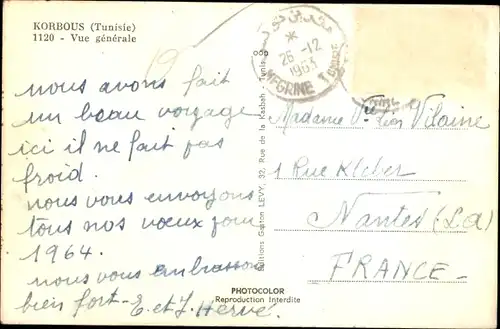 KORBOUS (Tunisie)
1120 - Vue générale
nous avons fait
un beau voyage
ici il ne fait pas
froid.
nous vous envoyons
tous nos vœux pour
1964.
nous vous embrassons
bien fort - E. et J. Hervé.
26 -12
1963
MEGRINE TUNISIE
Editions Gaston LEVY, 32, Rue de la Kasbah - Tunis
Madame Vve Léon Vilaine
1 Rue Kleber
Nantes (L a)
FRANCE
PHOTOCOLOR
Reproduction Interdite